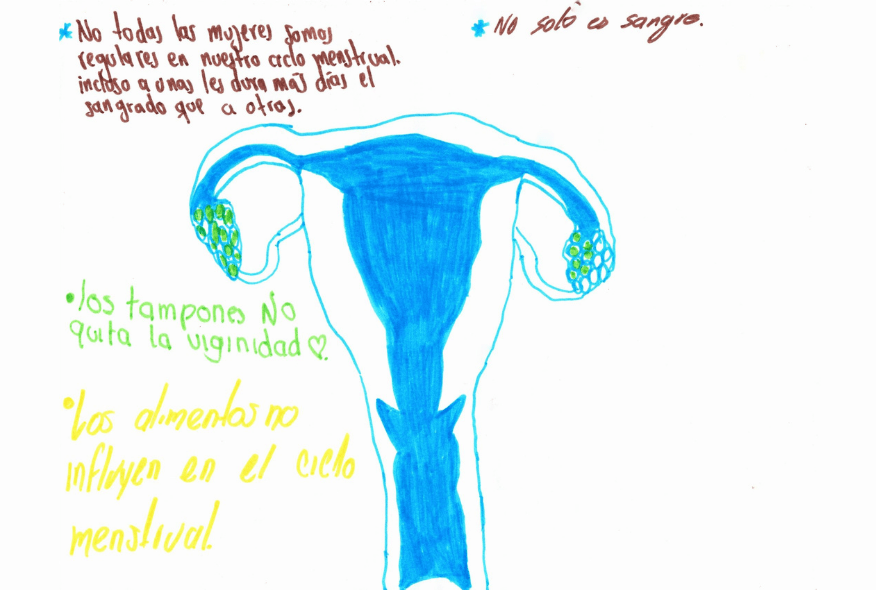 * No todas las mujeres somos
regulares en nuestro ciclo menstrual.
incluso a unas les dura más días el
sangrado que a otras.
* No soló es sangre.
• los tampones No
quita la viginidad ♡.
• Los alimentos no
influyen en el ciclo
menstrual.